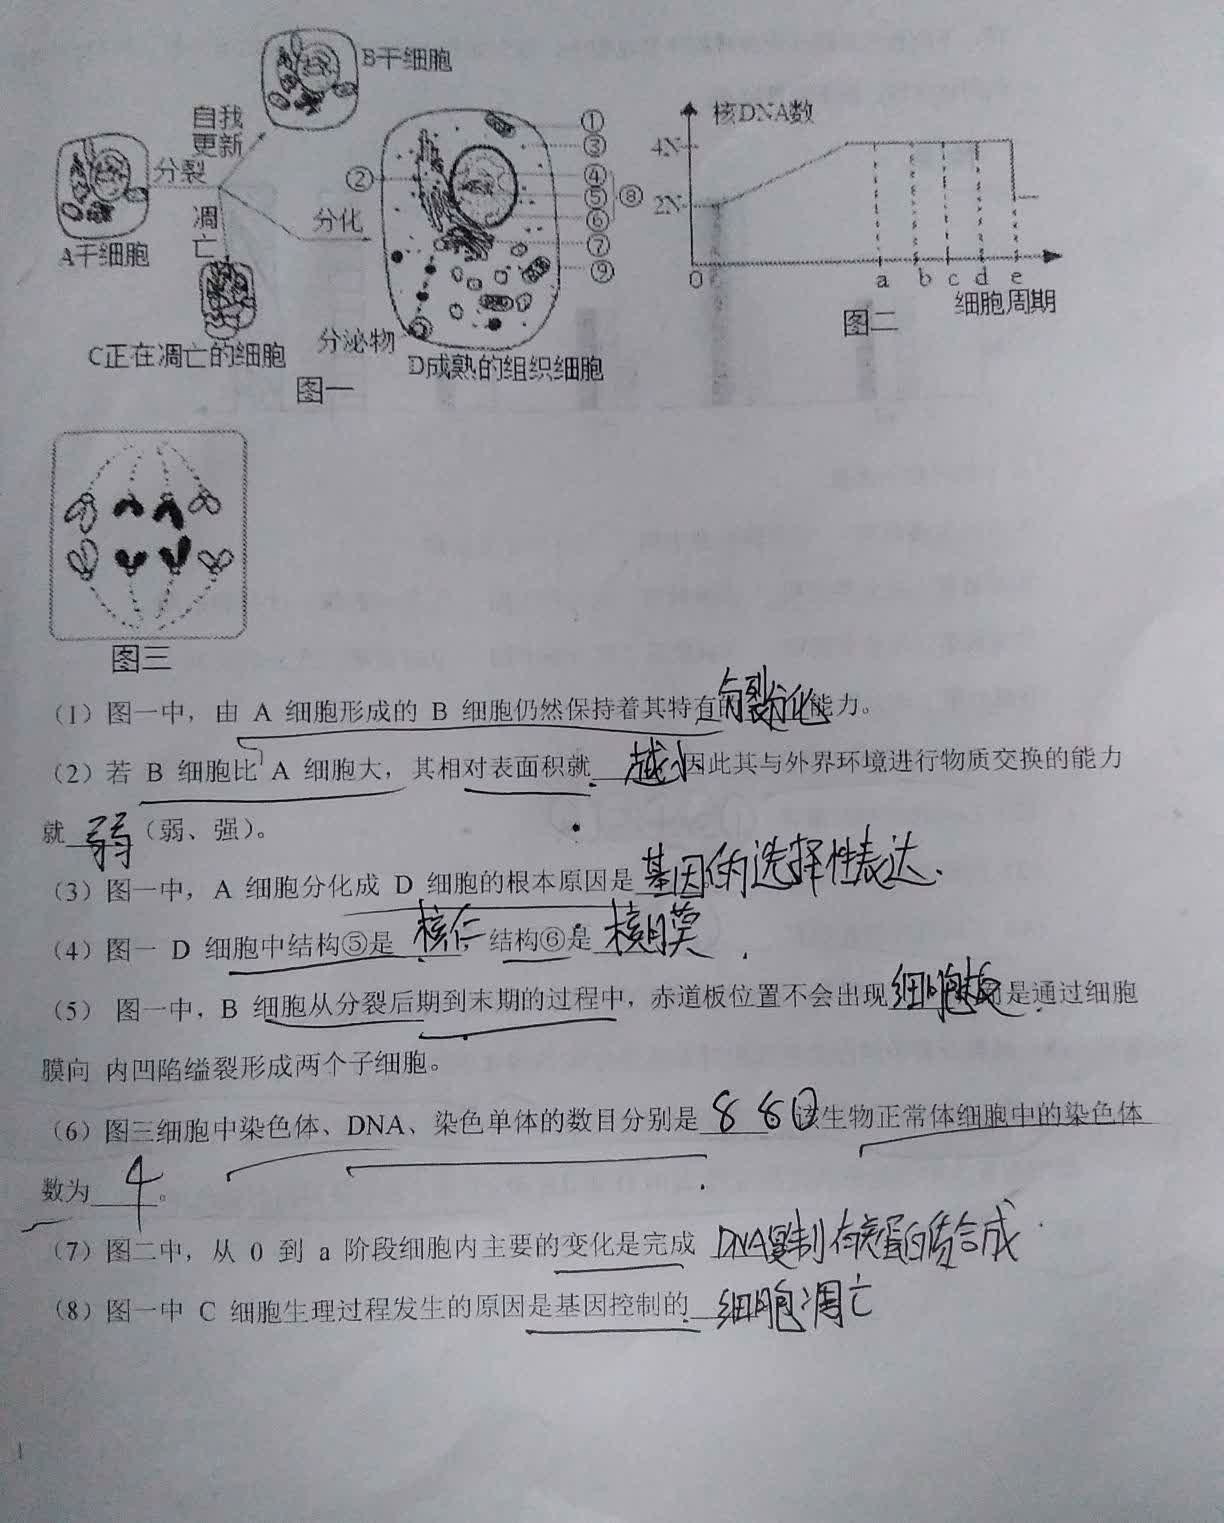 B干细胞
自我
更新
分裂
凋
亡
分化
A干细胞
C正在凋亡的细胞
分泌物
D成熟的组织细胞
图一
①
②
③
④
⑤
⑥
⑦
⑧
⑨
核DNA数
4N
2N
0 a b c d e
细胞周期
图二
图三
(1) 图一中，由 A 细胞形成的 B 细胞仍然保持着其特有的分裂分化能力。
(2) 若 B 细胞比 A 细胞大，其相对表面积就 越小 因此其与外界环境进行物质交换的能力
就 弱 （弱、强）。
(3) 图一中，A 细胞分化成 D 细胞的根本原因是 基因的选择性表达.
(4) 图一 D 细胞中结构⑤是 核仁 ，结构⑥是 核膜
(5) 图一中，B 细胞从分裂后期到末期的过程中，赤道板位置不会出现 细胞板 而是通过细胞
膜向 内凹陷缢裂形成两个子细胞。
(6) 图三细胞中染色体、DNA、染色单体的数目分别是 8 8 0 该生物正常体细胞中的染色体
数为 4 。
(7) 图二中，从 0 到 a 阶段细胞内主要的变化是完成 DNA复制有关蛋白质合成
(8) 图一中 C 细胞生理过程发生的原因是基因控制的 细胞凋亡